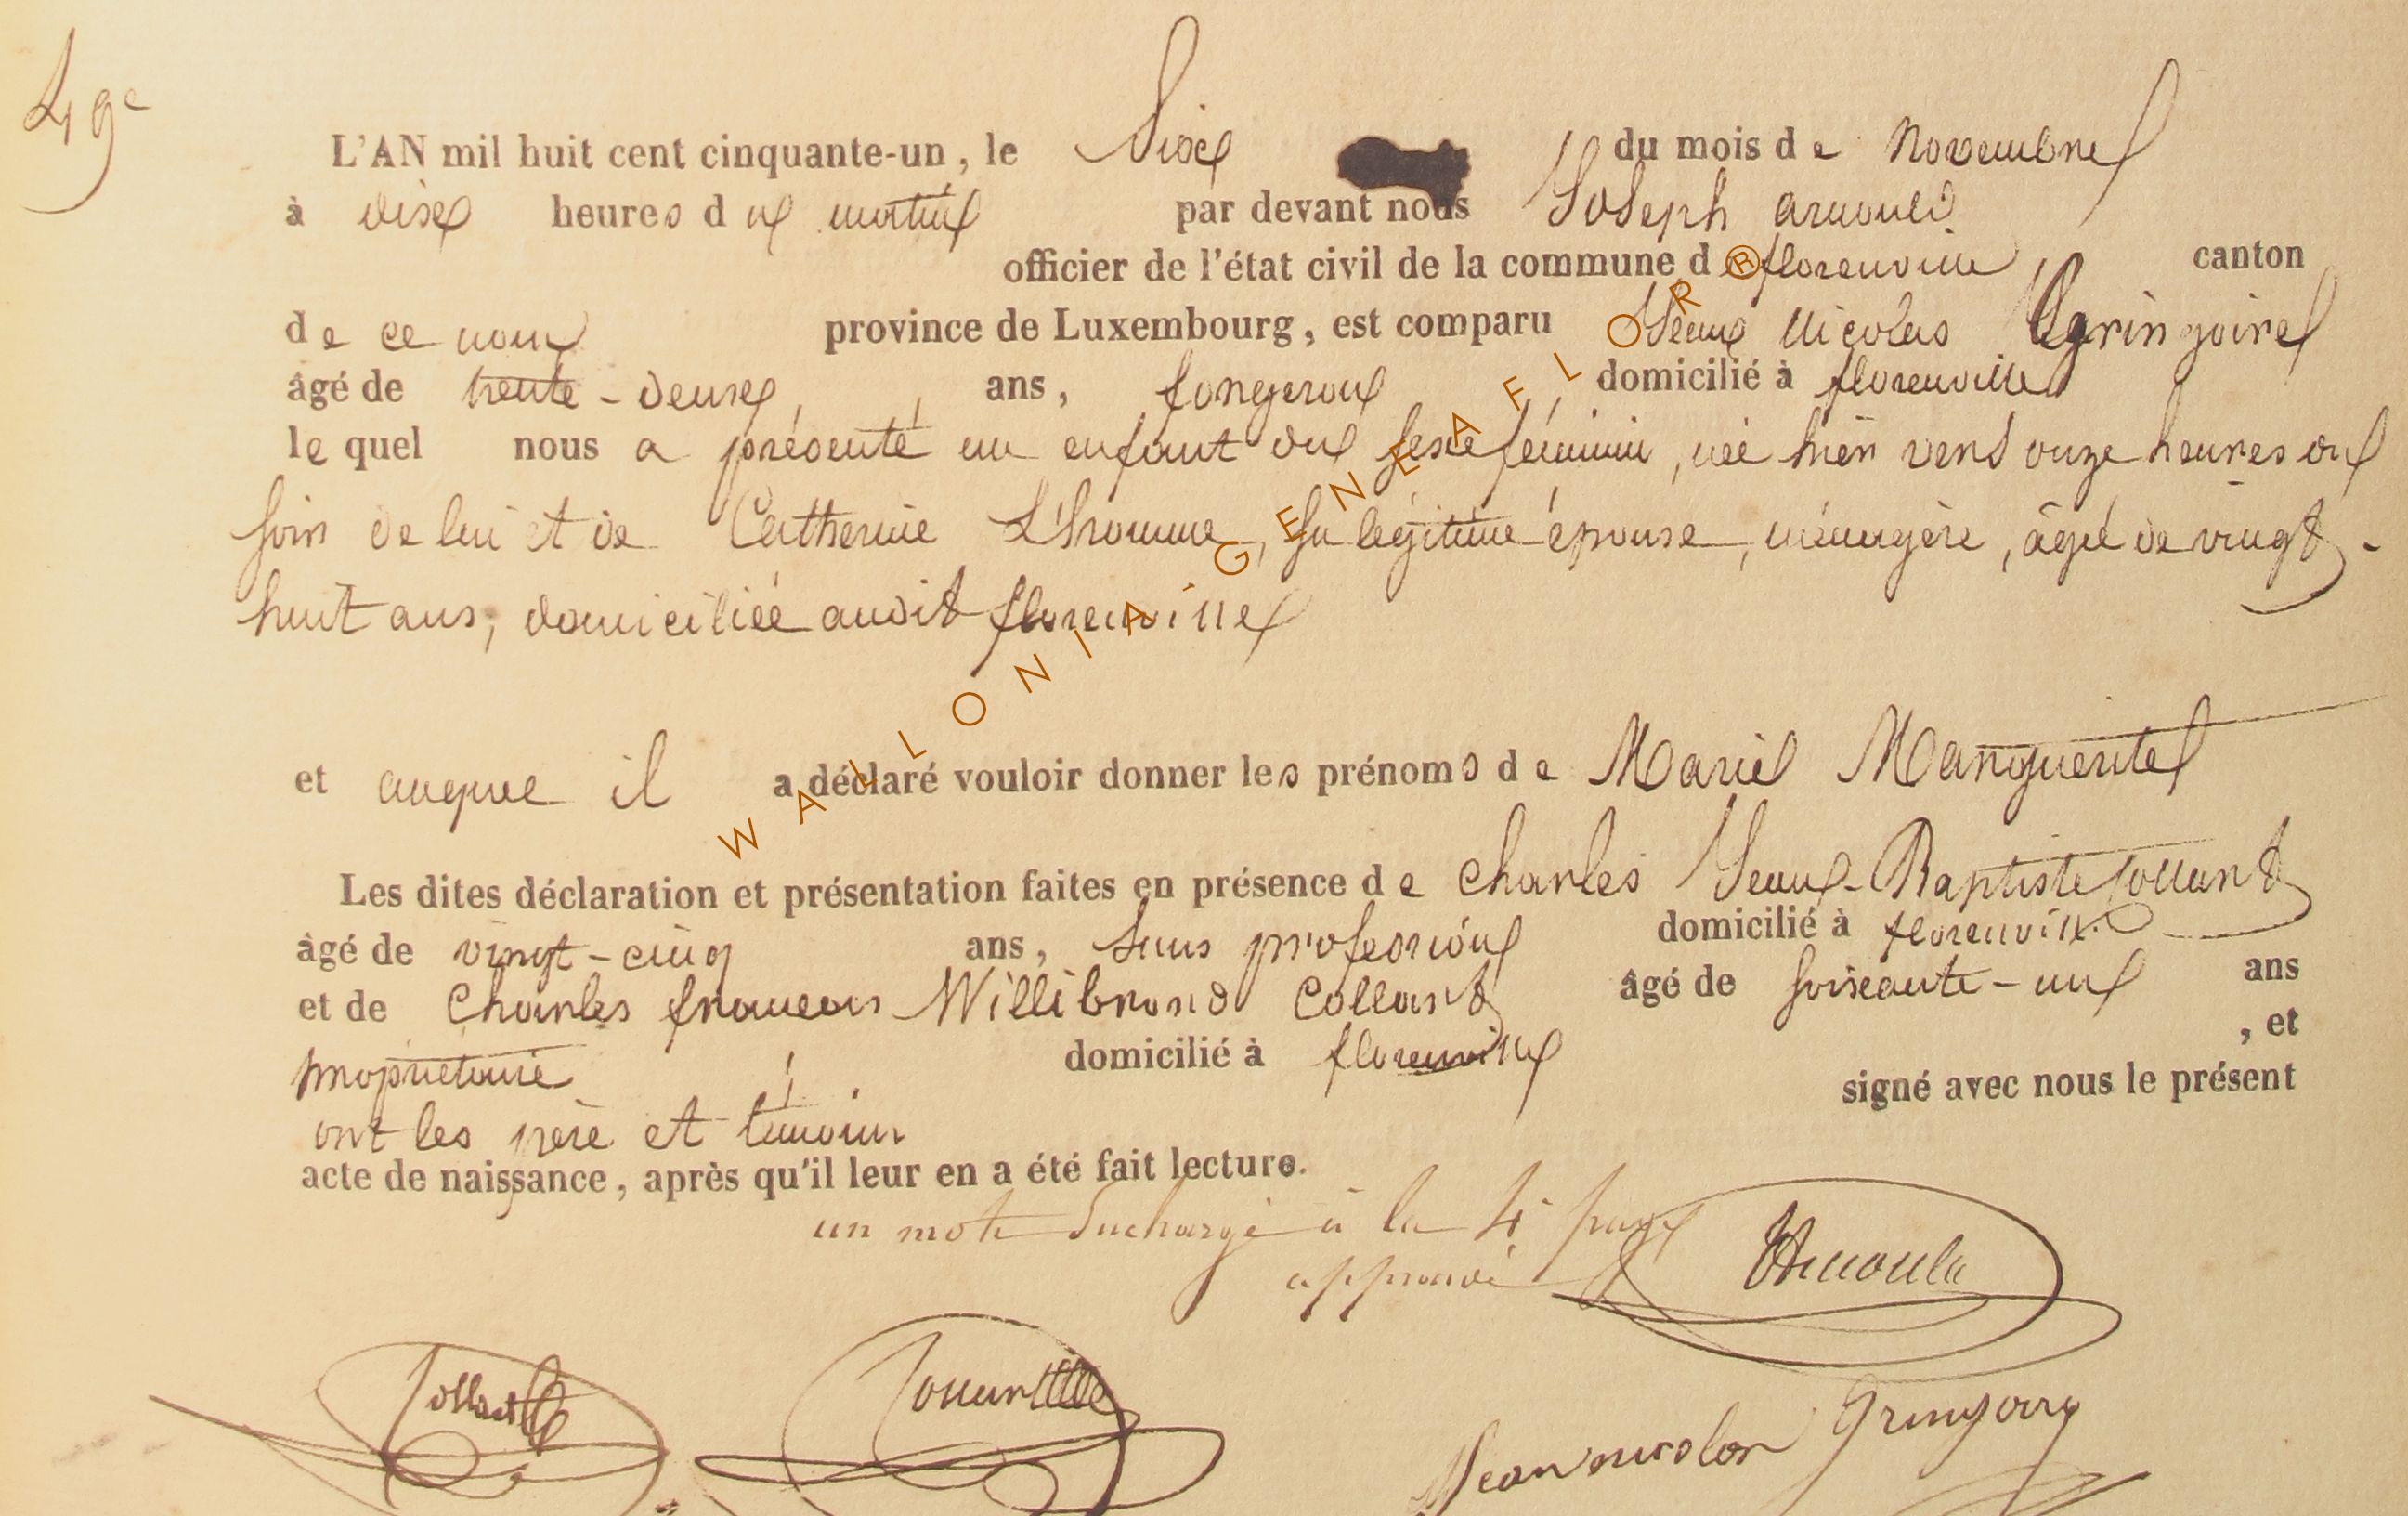 49e
L'AN mil huit cent cinquante-un, le six du mois de novembre
à dix heures du matin par devant nous Joseph arnould
officier de l'état civil de la commune de florenville canton
de ce nom province de Luxembourg, est comparu Jean Nicolas gringoire
âgé de trente-deux ans, forgeron, domicilié à florenville
lequel nous a présenté un enfant du sexe féminin, née hier vers onze heures du
soir de lui et de Catherine L'homme, sa légitime épouse, ménagère, âgé de vingt-
huit ans, domiciliée audit florenville
et auquel il a déclaré vouloir donner les prénoms de Marie Marguerite
Les dites déclaration et présentation faites en présence de Charles Jean-Baptiste Collart
âgé de vingt-cinq ans, sans profession domicilié à florenville
et de Charles francois Willibrord Collart âgé de soixante-un ans
propriétaire domicilié à florenville, et
ont les père et témoins signé avec nous le présent
acte de naissance, après qu'il leur en a été fait lecture.
un mot surchargé à la 4e
approuvé
Arnould
Collart Collart
Jean nicolas Gringoire
WALLONIA GENEAFLOR®